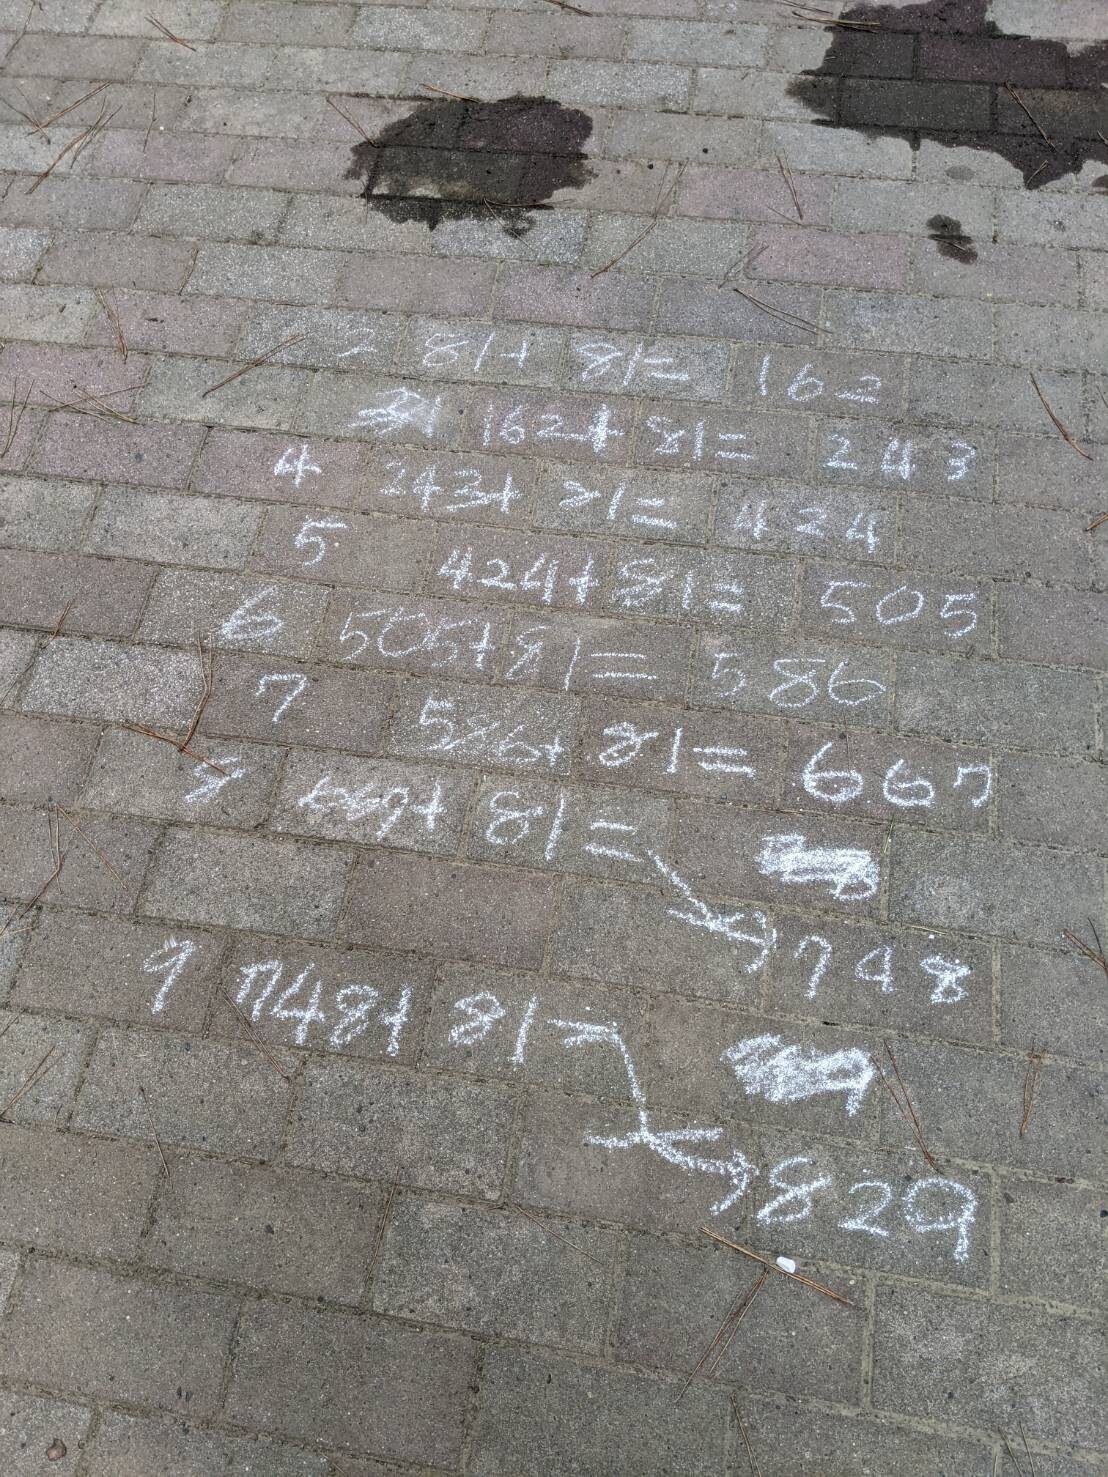 2 81+ 81= 162
3 162+ 81= 243
4 243+ 81= 424
5 424+ 81= 505
6 505+81= 586
7 586+ 81= 667
8 667+ 81=
748
9 748+ 81=
829